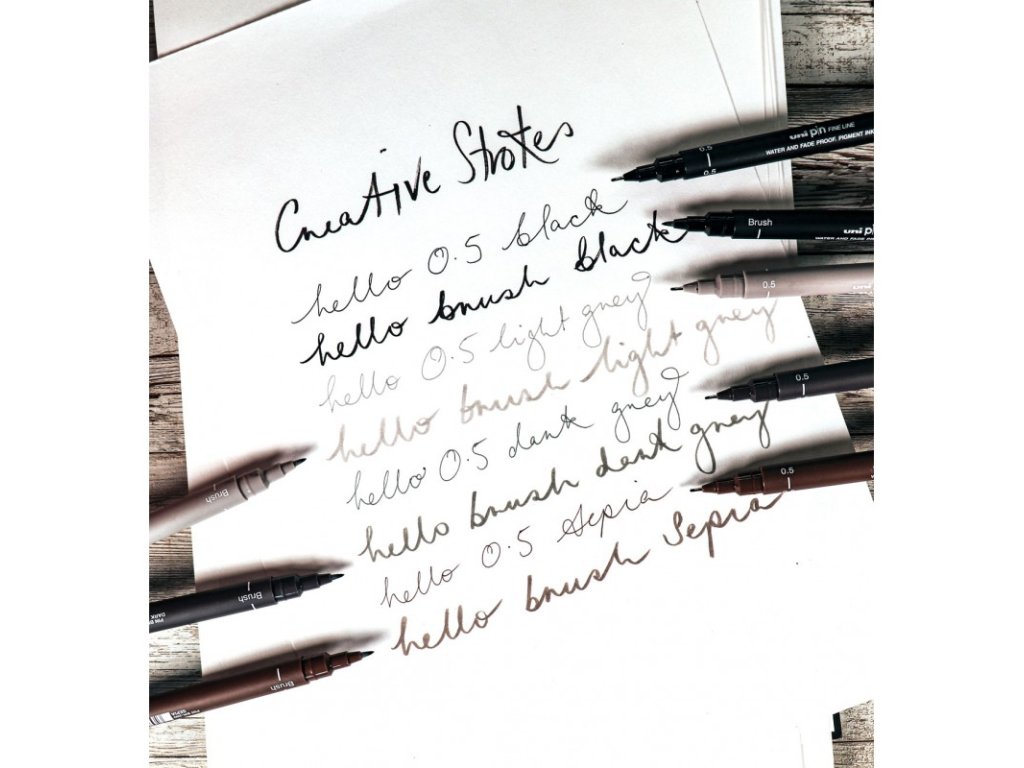 Creative Strokes
hello 0.5 black
hello brush black
hello 0.5 light grey
hello brush light grey
hello 0.5 dark grey
hello brush dark grey
hello 0.5 Sepia
hello brush Sepia
uni pin FINE LINE
WATER AND FADE PROOF, PIGMENT INK
0.5
0.5
Brush
uni pin
WATER AND FADE
0.5
0.5
0.5
Brush
Brush
PIN
DARK
Brush
SEPIA